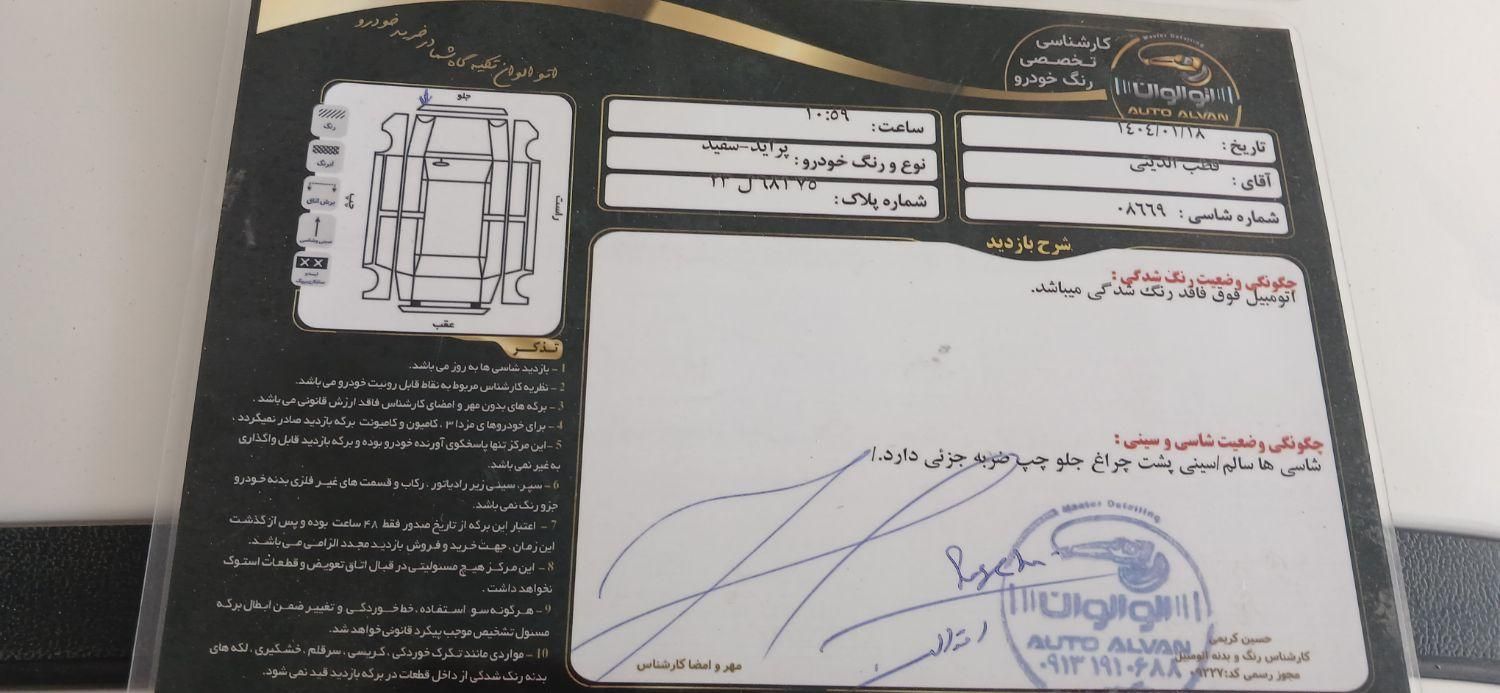 کارشناسی
تخصصی
رنگ خودرو
Master Detailing
اتو الوان
AUTO ALVAN
اتو الوان تکیه گاه شما در خرید خودرو
تاریخ : ۱۴۰۴/۰۱/۱۸
آقای : قطب الدینی
شماره شاسی : ۰۸۶۶۹
ساعت: ۱۰:۵۹
نوع و رنگ خودرو: پراید-سفید
شماره پلاک:
جلو
راست
چپ
عقب
رنگ
لیرنگ
برش اتاق
سینی وشاسی
شرح بازدید
چگونگی وضعیت رنگ شدگی :
اتومبیل فوق فاقد رنگ شدگی میباشد.
چگونگی وضعیت شاسی و سینی :
شاسی ها سالم/سینی پشت چراغ جلو چپ ضربه جزئی دارد./
تذکر
1 - بازدید شاسی ها به روز می باشد.
2 - نظریه کارشناس مربوط به نقاط قابل رویت خودرو می باشد.
3 - برگه های بدون مهر و امضای کارشناس فاقد ارزش قانونی می باشد .
4 - برای خودروها ی مزدا ۳ ، کامیون و کامیونت برگه بازدید صادر نمیگردد .
5 -این مرکز تنها پاسخگوی آورنده خودرو بوده و برگه بازدید قابل واگذاری
به غیر نمی باشد.
6 - سپر، سینی زیر رادیاتور ، رکاب و قسمت های غیر فلزی بدنه خودرو
جزو رنگ نمی باشد.
7 - اعتبار این برگه از تاریخ صدور فقط ۴۸ ساعت بوده و پس از گذشت
این زمان ، جهت خرید و فروش بازدید مجدد الزامی می باشد.
8 - این مرکز هیچ مسئولیتی در قبال اتاق تعویض و قطعات استوک
نخواهد داشت .
9 - هرگونه سو استفاده ، خط خوردگی و تغییر ضمن ابطال برگه
مسئول تشخیص موجب پیگرد قانونی خواهد شد.
10 - مواردی مانند تگرگ خوردگی ، گریسی ، سرقلم ، خشگیری ، لکه های
بدنه رنگ شدگی از داخل قطعات در برگه بازدید قید نمی شود.
مهر و امضا کارشناس
Master Detailing
اتو الوان
AUTO ALVAN
۰۹۱۳۱۹۱۰۶۸۸
حسین کریمی
کارشناس رنگ و بدنه اتومبیل
مجوز رسمی کد:۰۹۲۲۷